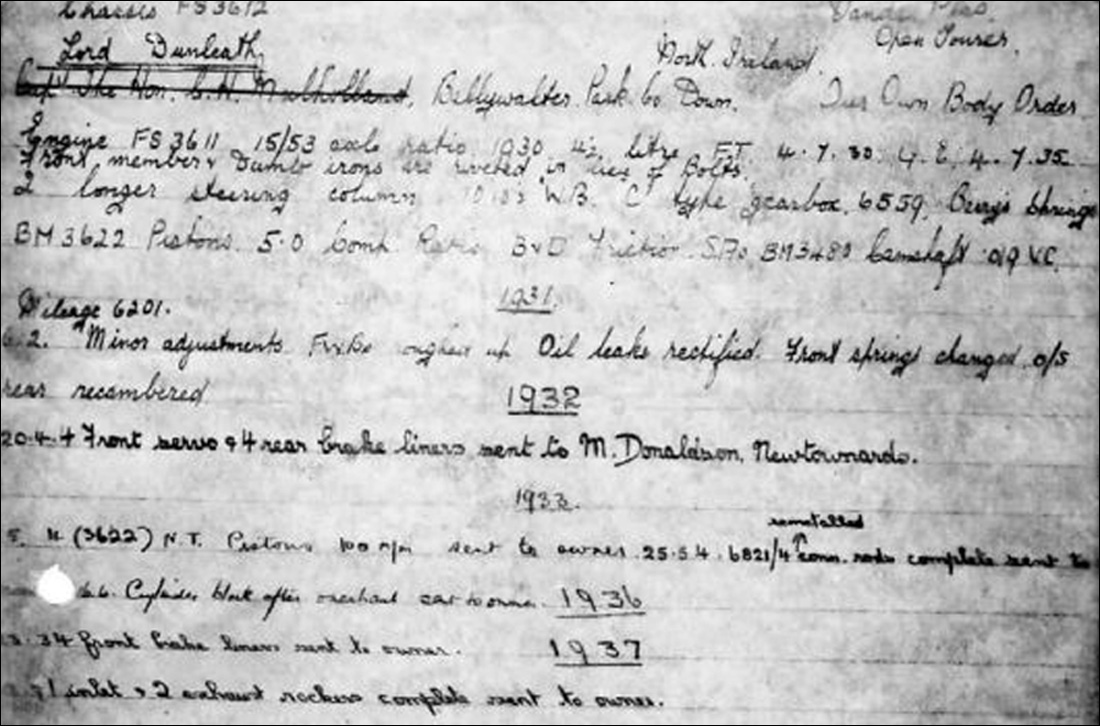 Chassis FS3612
Vanden Plas.
Lord Dunleath,
North. Ireland.
Open Tourer.
Capt The Hon. C. H. Mulholland, Ballywalter Park Co Down. Own Body Order
Engine FS3611 15/53 axle ratio 1930 4½ litre F.T. 4.7.30 G.E. 4.7.35
Front member & Dumb irons are riveted in lieu of Bolts.
2 longer steering column W.B. "C" type gearbox. 6559. Springs
BM3622 Pistons. 5.0 Comp Ratio. Friction BM3480 Camshaft .019 V.C.
1931.
Mileage 6201.
6.2. Minor adjustments up Oil leaks rectified. Front springs changed. o/s
rear recambered
1932
20.4.4 Front servo & 4 rear brake liners sent to M. Donaldson, Newtownards.
1933.
remetalled
(3622) N.T. Pistons sent to owner. 25.5.4. 6821/4 conn. rods complete sent to
Cylinder block after overhaul owner. 1936
34 front brake liners sent to owner. 1937
1 inlet & 2 exhaust rockers complete sent to owner.